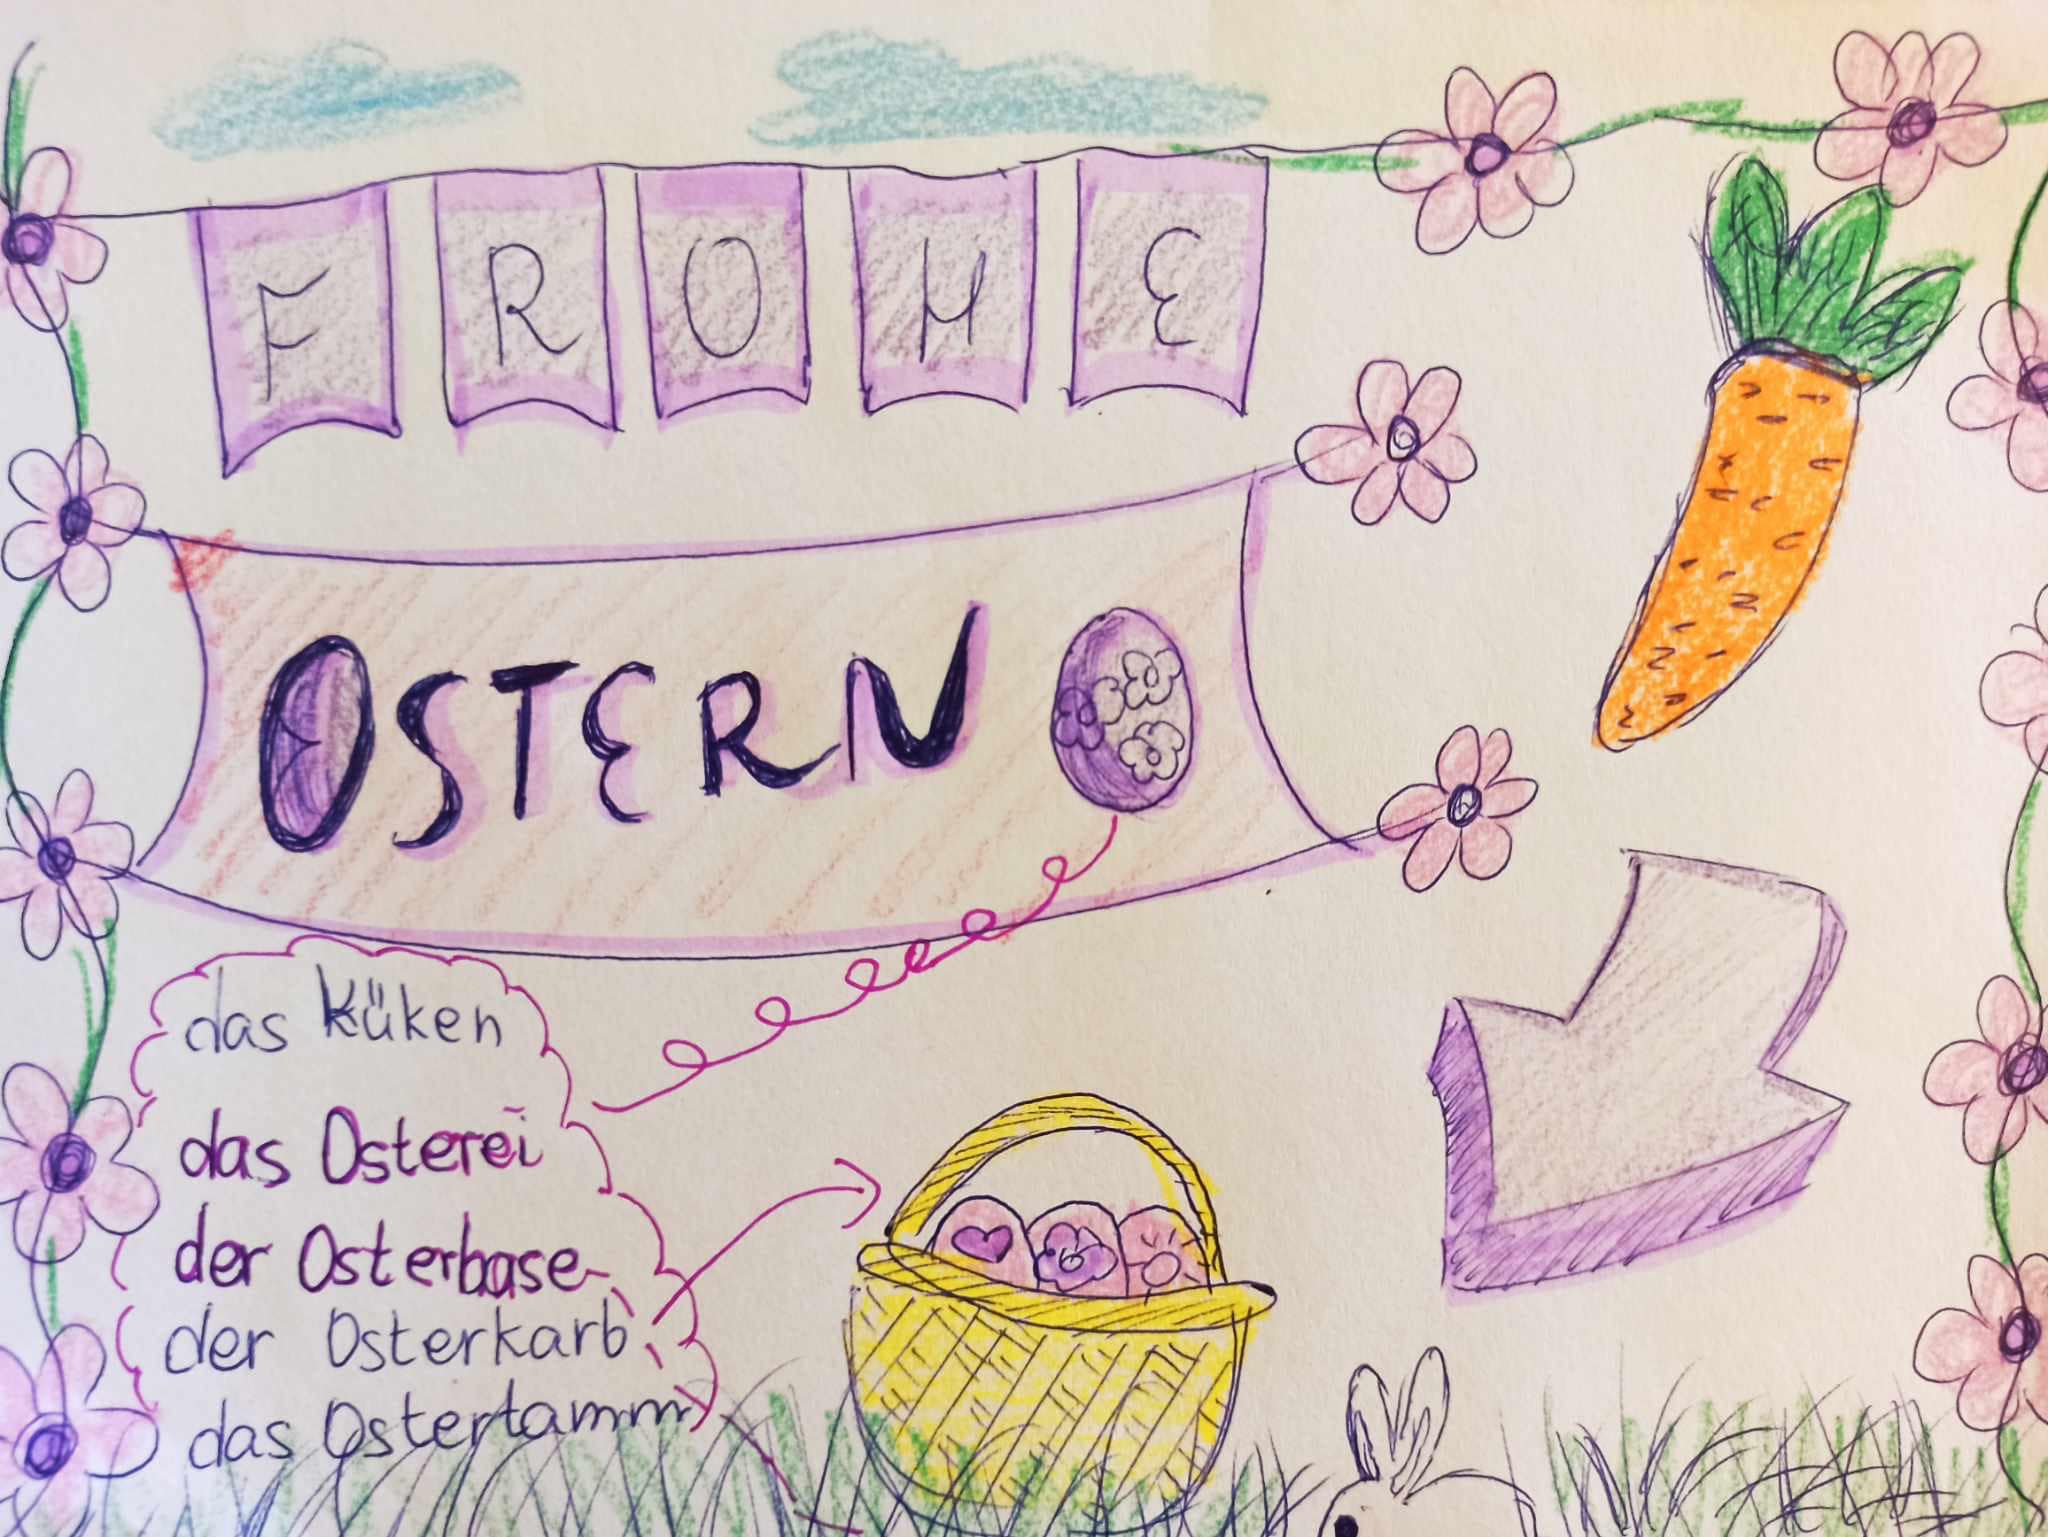 FROHE
OSTERN
das Küken
das Osterei
der Osterbase
der Osterkarb
das Ostertamm